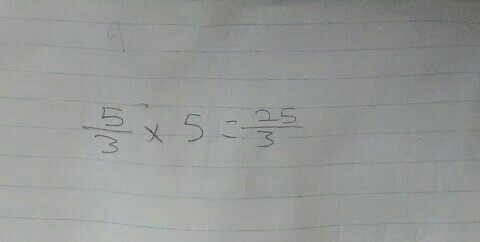 5/3 × 5 = 25/3